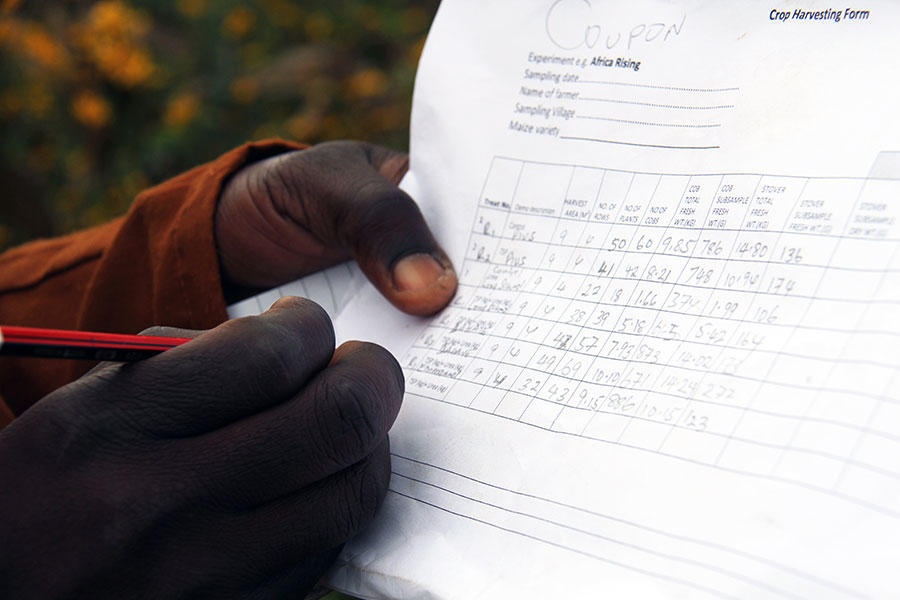 Crop Harvesting Form
COUPON
Experiment e.g. Africa Rising
Sampling date
Name of farmer
Sampling Village
Maize variety
Treat No. Demo description HARVEST AREA (M²) NO. OF ROWS NO. OF PLANTS NO. OF COBS COB TOTAL FRESH WT.(KG) COB SUBSAMPLE FRESH WT.(G) STOVER TOTAL FRESH WT.(KG) STOVER SUBSAMPLE FRESH WT.(G) STOVER SUBSAMPLE DRY WT.(G)
R1 Plus 9 4 50 60 9.85 786 14.80 136
R2 Plus 9 4 41 42 8.21 748 10.94 174
9 4 22 18 1.66 374 1.99 106
9 4 38 39 5.18 5.42 164
9 4 57 7.93 873 14.02
9 4 49 69 10.10 671 14.24 272
9 4 32 43 9.15 886 10.15 123